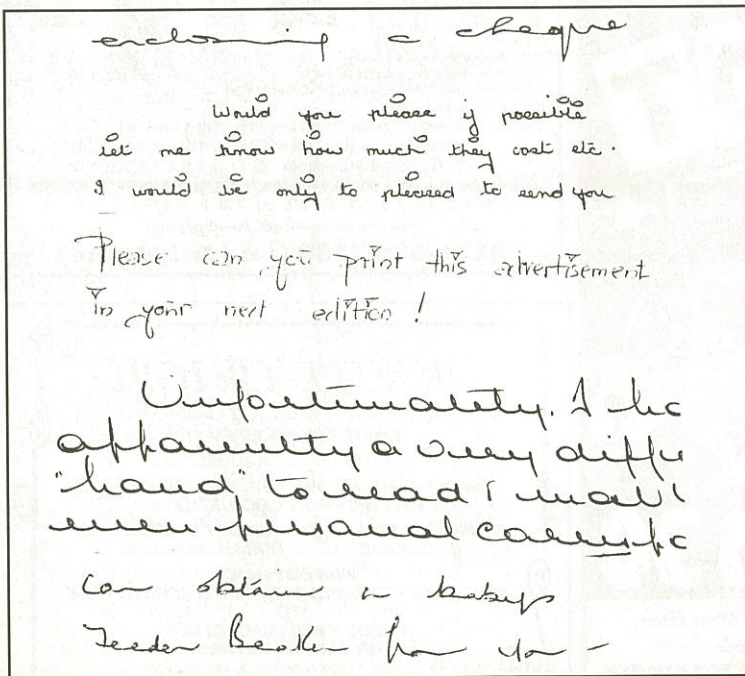 enclosing a cheque
Would you please if possible
let me know how much they cost etc.
I would be only to pleased to send you
Please can you print this advertisement
in your next edition!
Unfortunately. I ha
apparently a very diffi
hand to read I mail
even personal
can obtain a babys
Feeder Beaker from you -